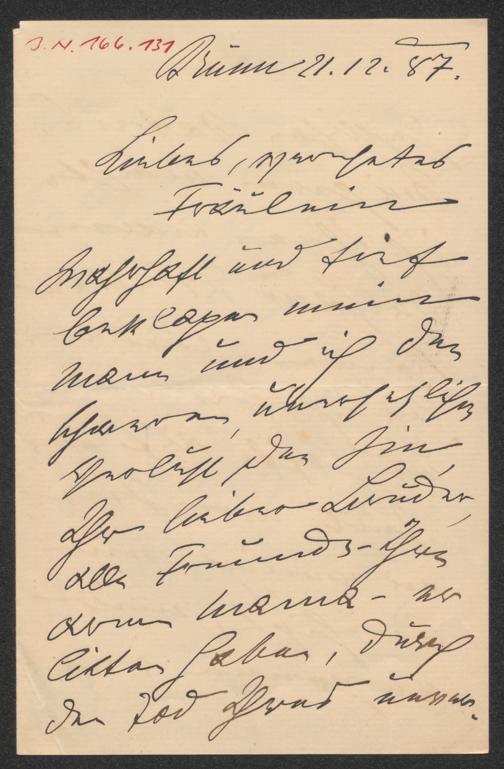 J.N. 166.131
Brünn 21.12.87.
Liebes, verehrtes
Fräulein
Wahrhaft und tief
beklagen mein
Mann und ich den
schweren, unersetzlichen
Verlust, den Sie,
Ihr lieber Bruder,
alle Freunde Ihrer
armen Mama - er
litten haben, durch
den Tod Ihrer unver-